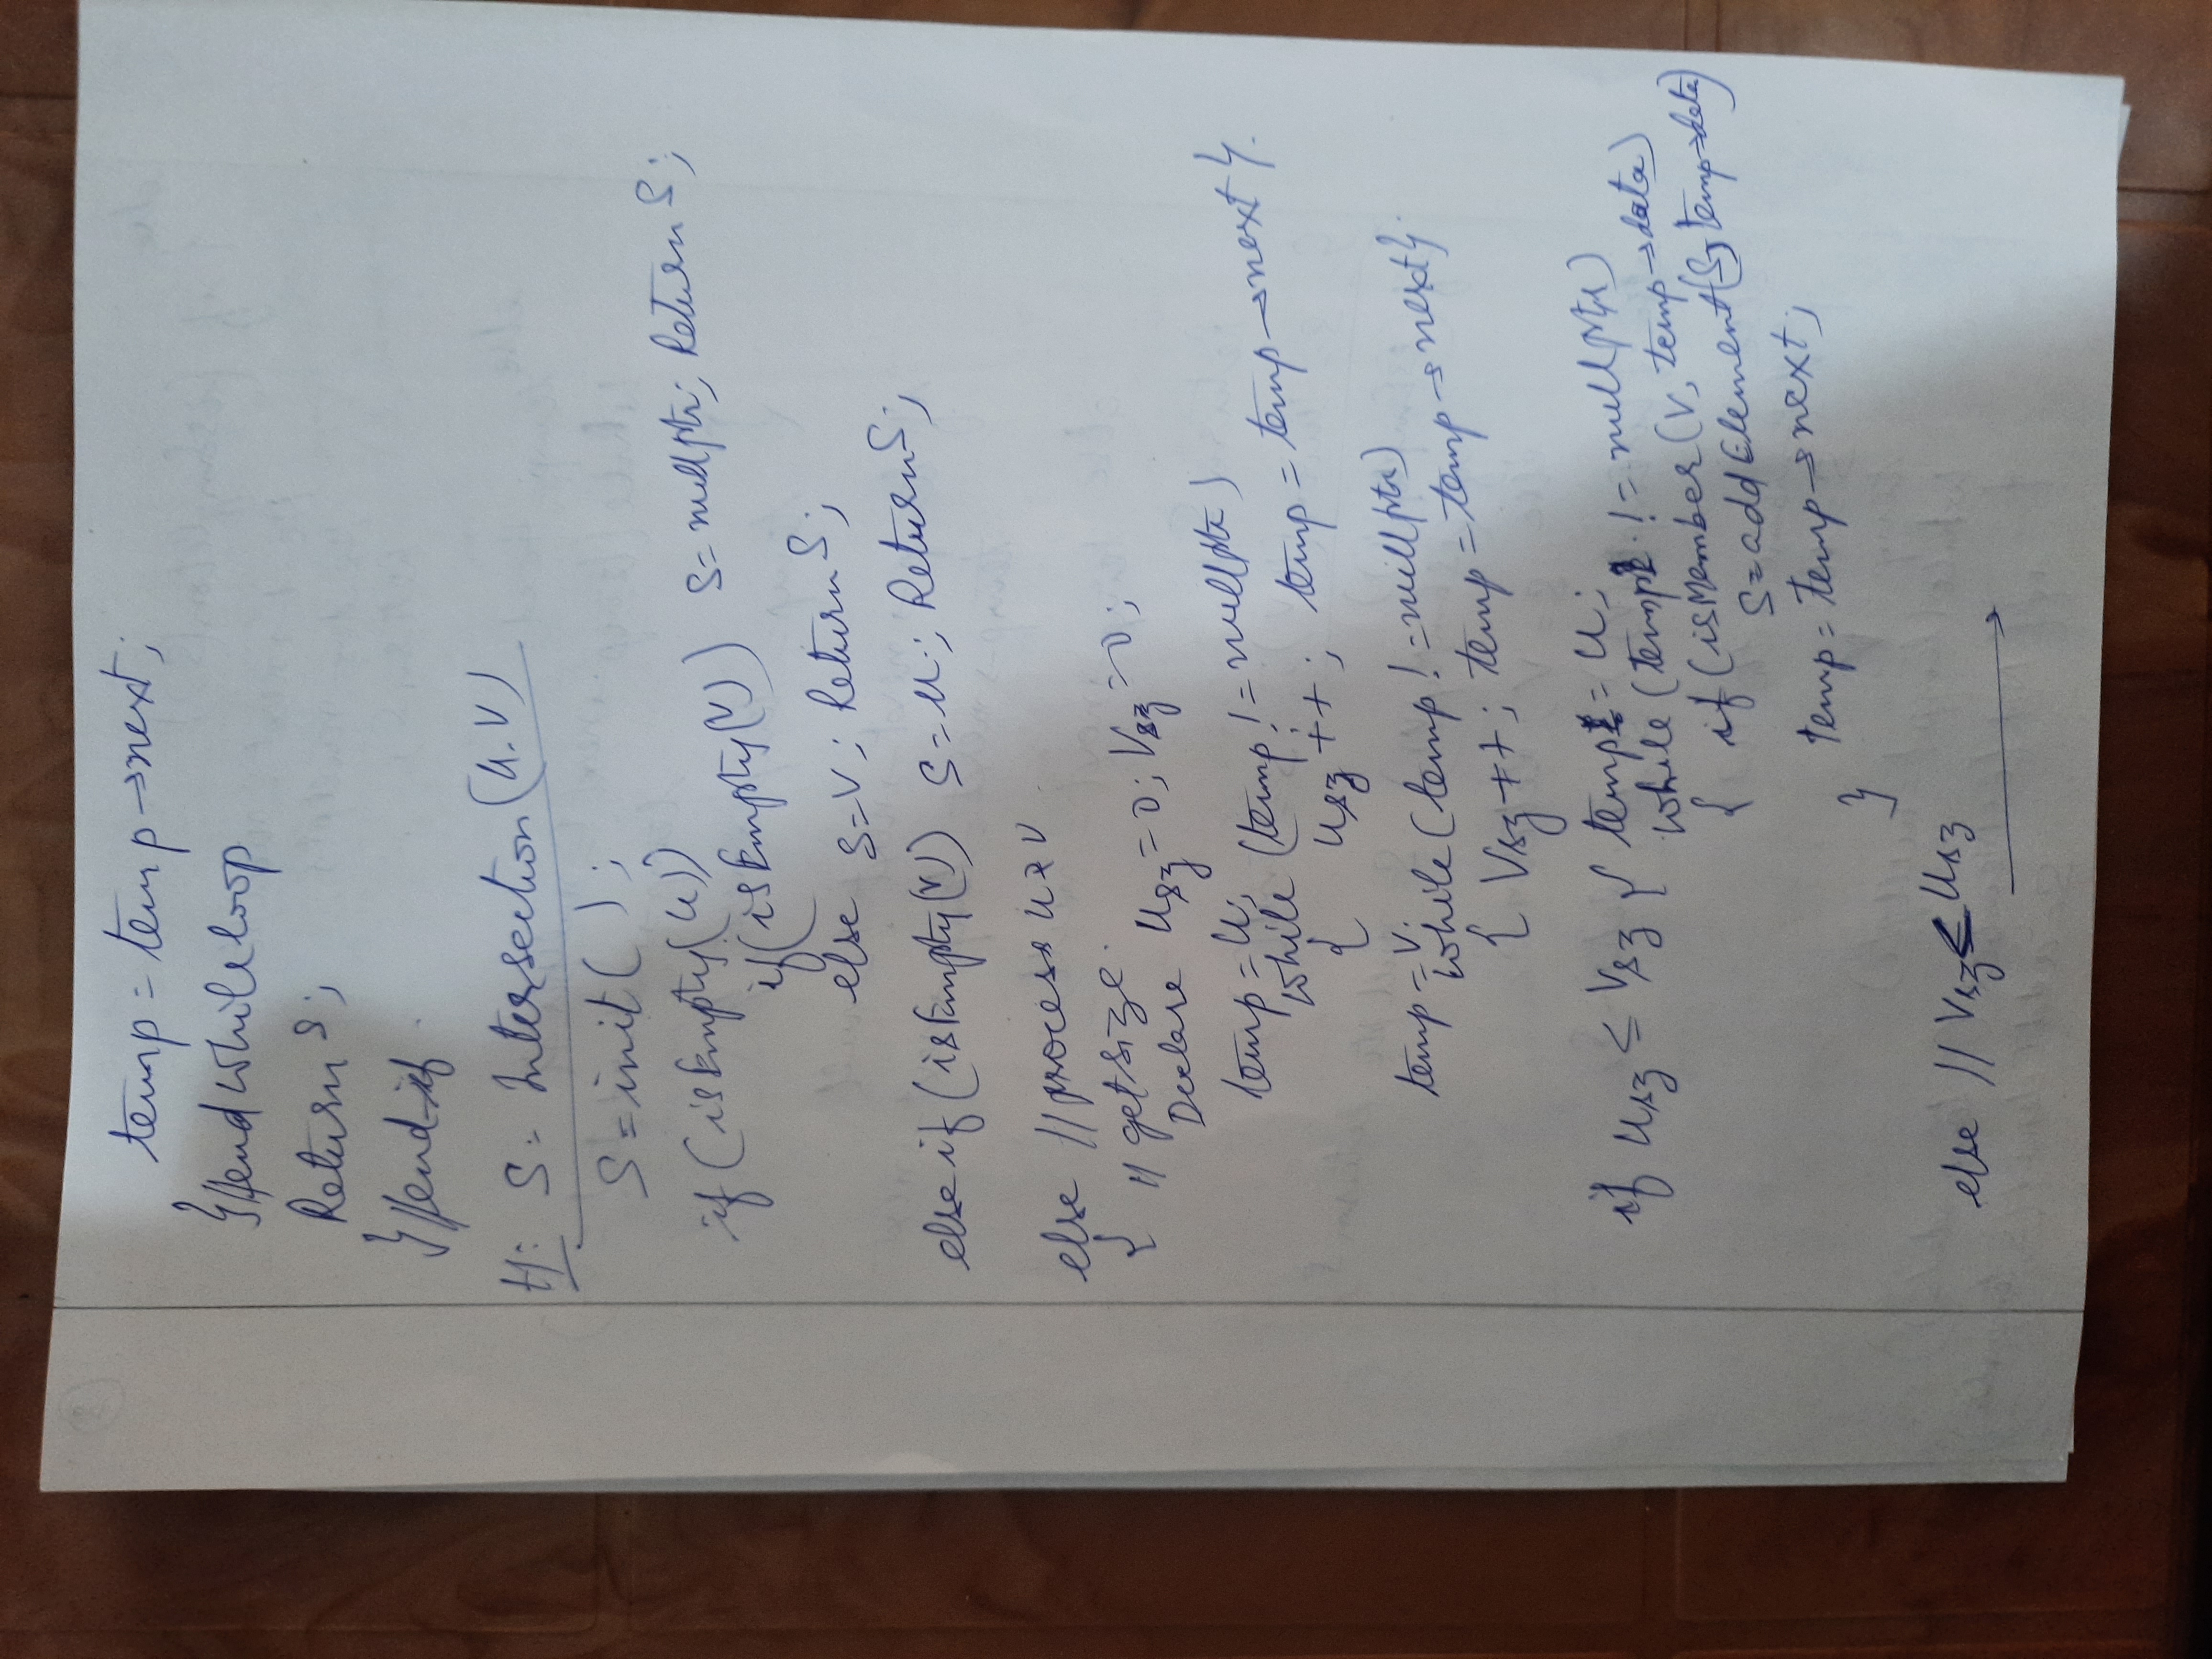 temp = temp → next;
} // end while loop
Return S;
} // end if.
H: S = Intersection (U.V)
S = init ( );
if (isEmpty(U))
if (isEmpty(V)) S = nullptr; Return S;
else S = V; Return S;
else if (isEmpty(V)) S = U; Return S;
else // process U & V
{ // get size.
Declare Usz = 0; Vsz = 0;
temp = U;
while (temp != nullptr)
{ Usz ++; temp = temp → next }.
temp = V;
while (temp != nullptr)
{ Vsz ++; temp = temp → next }.
if Usz ≤ Vsz { temp = U;
while (temp != nullptr)
{ if (isMember (V, temp → data)
S = addElement (S, temp → data)
temp = temp → next;
}
else // Vsz ≤ Usz